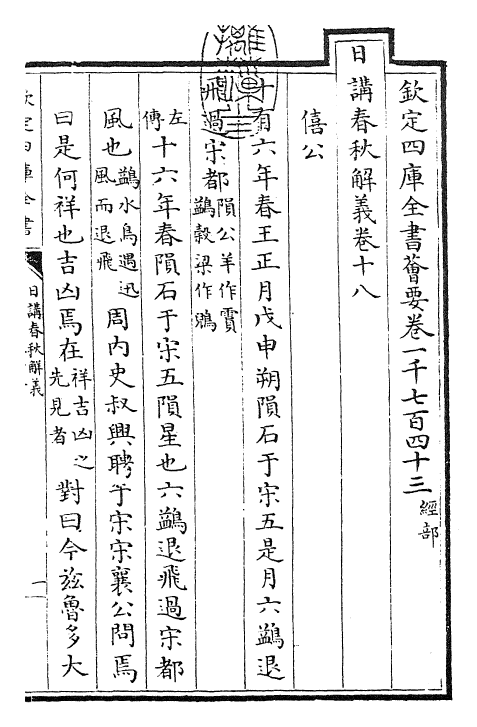 欽定四庫全書薈要卷一千七百四十三 經部
日講春秋解義卷十八
僖公
十有六年春王正月戊申朔隕石于宋五是月六鷁退
飛過宋都 隕公羊作霣鷁穀梁作鶂
左傳十六年春隕石于宋五隕星也六鷁退飛過宋都
風也 鷁水鳥遇迅風而退飛 周内史叔興聘于宋宋襄公問焉
曰是何祥也吉凶焉在 祥吉凶之先見者 對曰今玆魯多大
欽定四庫全書
日講春秋解義
一